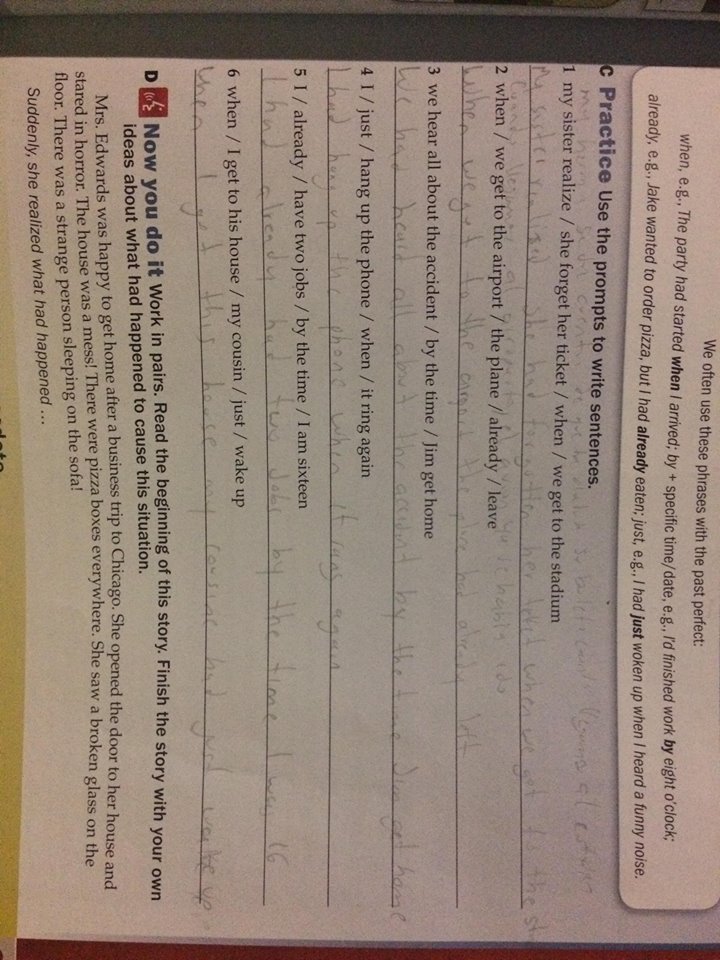 We often use these phrases with the past perfect:
when, e.g., The party had started when I arrived; by + specific time/date, e.g., I'd finished work by eight o'clock;
already, e.g., Jake wanted to order pizza, but I had already eaten; just, e.g., I had just woken up when I heard a funny noise.
C Practice Use the prompts to write sentences.
my
1 my sister realize / she forget her ticket / when / we get to the stadium
My sister realized she had forgotten her when we got to the
Cuando al el ya se había ido
2 when / we get to the airport / the plane / already / leave
When we got to the airport the had already left
3 we hear all about the accident / by the time / Jim get home
We had heard all about the accident by the time Jim get home
4 I / just / hang up the phone / when / it ring again
I had hang up the phone when it again
5 I / already / have two jobs / by the time / I am sixteen
I had already had two Jobs by the time I was 16
6 when / I get to his house / my cousin / just / wake up
When I get this house my had just up
D Now you do it Work in pairs. Read the beginning of this story. Finish the story with your own
ideas about what had happened to cause this situation.
Mrs. Edwards was happy to get home after a business trip to Chicago. She opened the door to her house and
stared in horror. The house was a mess! There were pizza boxes everywhere. She saw a broken glass on the
floor. There was a strange person sleeping on the sofa!
Suddenly, she realized what had happened ...